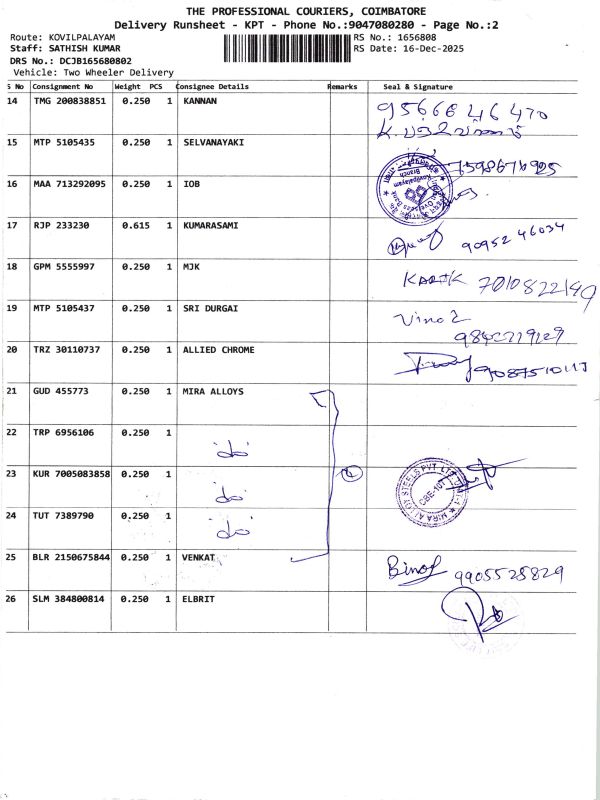 THE PROFESSIONAL COURIERS, COIMBATORE
Delivery Runsheet - KPT - Phone No.:9047080280 - Page No.:2
Route: KOVILPALAYAM
Staff: SATHISH KUMAR
DRS No.: DCJB165680802
Vehicle: Two Wheeler Delivery
RS No.: 1656808
RS Date: 16-Dec-2025
S No Consignment No Weight PCS Consignee Details Remarks Seal & Signature
14 TMG 200838851 0.250 1 KANNAN 9566646470
15 MTP 5105435 0.250 1 SELVANAYAKI
16 MAA 713292095 0.250 1 IOB
17 RJP 233230 0.615 1 KUMARASAMI 9095246034
18 GPM 5555997 0.250 1 MJK KARTK 7010822149
19 MTP 5105437 0.250 1 SRI DURGAI
20 TRZ 30110737 0.250 1 ALLIED CHROME
21 GUD 455773 0.250 1 MIRA ALLOYS
22 TRP 6956106 0.250 1 do
23 KUR 7005083858 0.250 1 do
MIRA ALLOY STEELS PVT. LTD.
CBE-107
24 TUT 7389790 0.250 1 do
25 BLR 2150675844 0.250 1 VENKAT Binoj 9905528829
26 SLM 384800814 0.250 1 ELBRIT